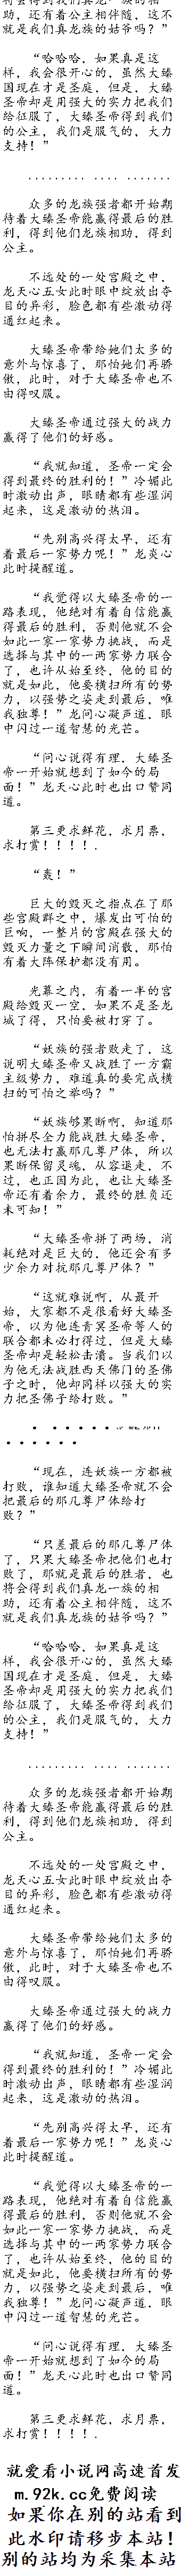 将会得到我们真龙一族的相
助，还有着公主相伴随，这不
就是我们真龙族的姑爷吗？”
“哈哈哈，如果真是这
样，我会很开心的，虽然大臻
国现在才是圣庭，但是，大臻
圣帝却是用强大的实力把我们
给征服了，大臻圣帝得到我们
的公主，我们是服气的，大力
支持！”
......... .... .......
众多的龙族强者都开始期
待着大臻圣帝能赢得最后的胜
利，得到他们龙族相助，得到
公主。
不远处的一处宫殿之中，
龙天心五女此时眼中绽放出夺
目的异彩，脸色都有些激动得
通红起来。
大臻圣帝带给她们太多的
意外与惊喜了，那怕她们再骄
傲，此时，对于大臻圣帝也不
由得叹服。
大臻圣帝通过强大的战力
赢得了他们的好感。
“我就知道，圣帝一定会
得到最终的胜利的！”冷媚此
时激动出声，眼睛都有些湿润
起来，这是激动的热泪。
“先别高兴得太早，还有
着最后一家势力呢！”龙炎心
此时提醒道。
“我觉得以大臻圣帝的一
路表现，他绝对有着自信能赢
得最后的胜利，否则他就不会
如此一家一家势力挑战，而是
选择与其中的一两家势力联合
了，也许从始至终，他的目的
就是如此，他要横扫所有的势
力，以强势之姿走到最后，唯
我独尊！”龙问心凝声道，眼
中闪过一道智慧的光芒。
“问心说得有理，大臻圣
帝一开始就想到了如今的局
面！”龙天心此时也出口赞同
道。
第三更求鲜花，求月票，
求打赏！！！！！.
“轰！”
巨大的毁灭之指点在了那
些宫殿群之中，爆发出可怕的
巨响，一整片的宫殿在强大的
毁灭力量之下瞬间消散，那怕
有着大阵保护都没有用。
光幕之内，有着一半的宫
殿给毁灭一空，如果不是圣龙
城了得，只怕要被打穿了。
“妖族的强者败走了，这
说明大臻圣帝又战胜了一方霸
主级势力，难道真的要完成横
扫的可怕之举吗？”
“妖族够果断啊，知道那
怕拼尽全力能战胜大臻圣帝，
也无法打赢那几尊尸体，所以
果断保留灵魂，从容退走，不
过，也正因为此，也让大臻圣
帝还有着余力，最终的胜负还
未可知！”
“大臻圣帝拼了两场，消
耗绝对是巨大的，他还会有多
少余力对抗那几尊尸体？”
“这就难说啊，从最开
始，大家都不是很看好大臻圣
帝，以为他连青冥圣帝等人的
联合都未必打得过，但是大臻
圣帝却是轻松击溃。当我们以
为他无法战胜西天佛门的圣佛
子之时，他却同样以强大的实
力把圣佛子给打败。”
“现在，连妖族一方都被
打败，谁知道大臻圣帝就不会
把最后的那几尊尸体给打
败？”
“只差最后的那几尊尸体
了，只果大臻圣帝把他们也打
败了，那就是最后的胜者，也
将会得到我们真龙一族的相
助，还有着公主相伴随，这不
就是我们真龙族的姑爷吗？”
“哈哈哈，如果真是这
样，我会很开心的，虽然大臻
国现在才是圣庭，但是，大臻
圣帝却是用强大的实力把我们
给征服了，大臻圣帝得到我们
的公主，我们是服气的，大力
支持！”
......... .... .......
众多的龙族强者都开始期
待着大臻圣帝能赢得最后的胜
利，得到他们龙族相助，得到
公主。
不远处的一处宫殿之中，
龙天心五女此时眼中绽放出夺
目的异彩，脸色都有些激动得
通红起来。
大臻圣帝带给她们太多的
意外与惊喜了，那怕她们再骄
傲，此时，对于大臻圣帝也不
由得叹服。
大臻圣帝通过强大的战力
赢得了他们的好感。
“我就知道，圣帝一定会
得到最终的胜利的！”冷媚此
时激动出声，眼睛都有些湿润
起来，这是激动的热泪。
“先别高兴得太早，还有
着最后一家势力呢！”龙炎心
此时提醒道。
“我觉得以大臻圣帝的一
路表现，他绝对有着自信能赢
得最后的胜利，否则他就不会
如此一家一家势力挑战，而是
选择与其中的一两家势力联合
了，也许从始至终，他的目的
就是如此，他要横扫所有的势
力，以强势之姿走到最后，唯
我独尊！”龙问心凝声道，眼
中闪过一道智慧的光芒。
“问心说得有理，大臻圣
帝一开始就想到了如今的局
面！”龙天心此时也出口赞同
道。
第三更求鲜花，求月票，
求打赏！！！！！.
就爱看小说网高速首发
m.92k.cc免费阅读
如果你在别的站看到
此水印请移步本站！
别的站均为采集本站